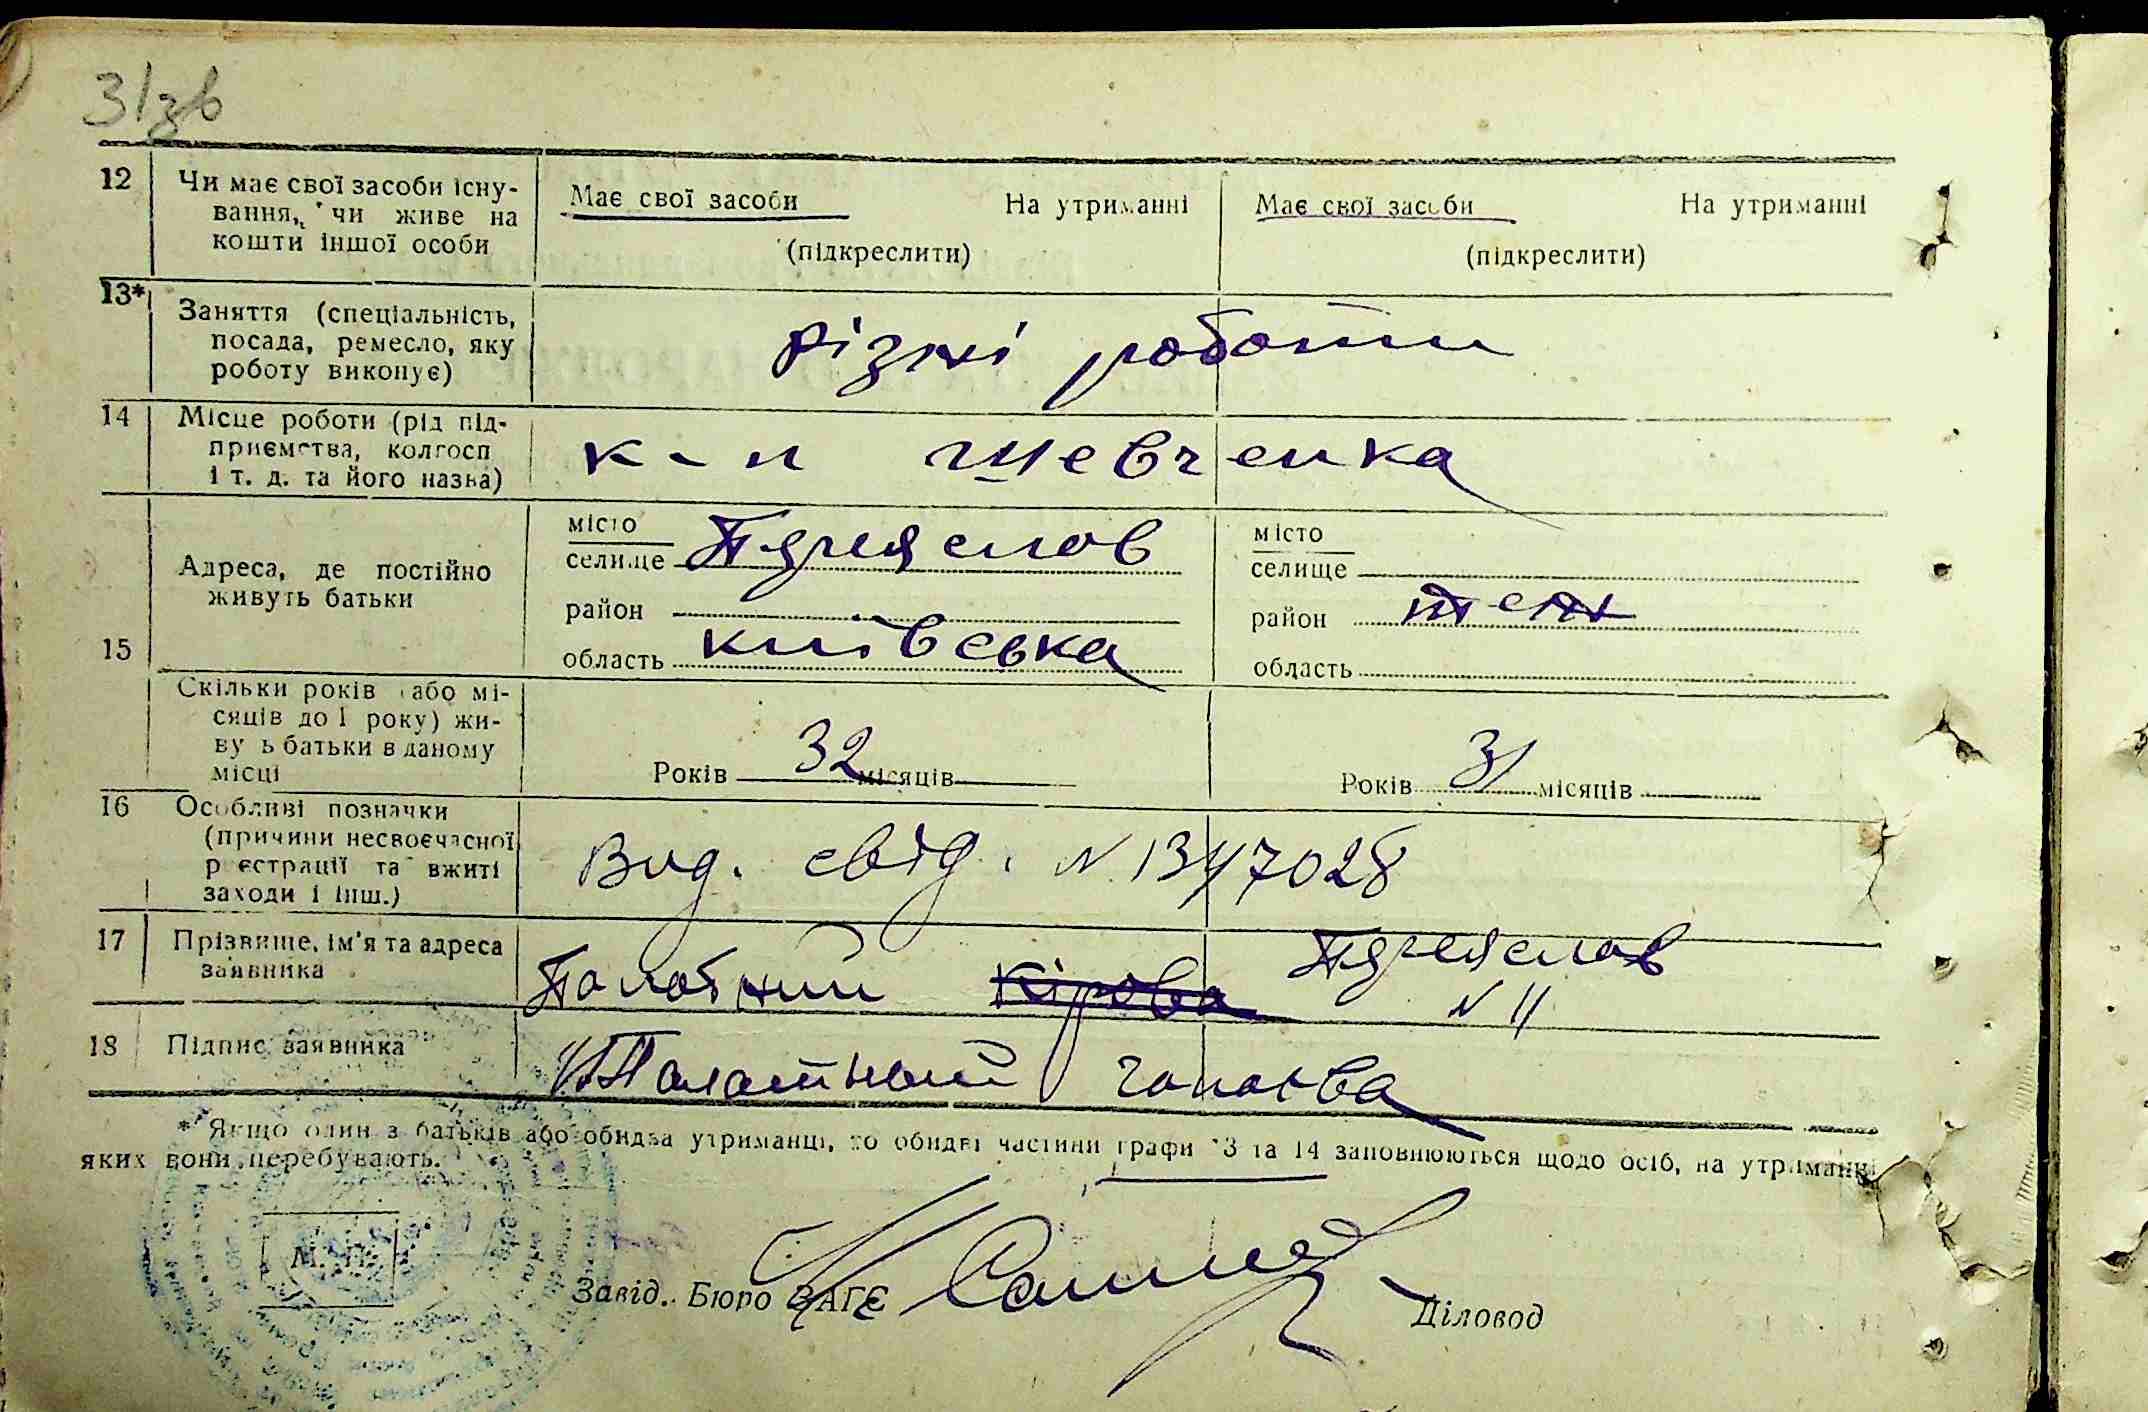 31зв
12 Чи має свої засоби існу-
вання, чи живе на
кошти іншої особи
Має свої засоби На утриманні Має свої засоби На утриманні
(підкреслити) (підкреслити)
13* Заняття (спеціальність,
посада, ремесло, яку
роботу виконує)
різні роботи
14 Місце роботи (рід під-
приємства, колгосп
і т. д. та його назва)
к-п Шевченка
15 Адреса, де постійно
живуть батьки
місто
селище Переяслов
район
область київська
місто
селище
район теж
область
Скільки років (або мі-
сяців до 1 року) жи-
вуть батьки в даному
місці
Років 32 місяців Років 31 місяців
16 Особливі позначки
(причини несвоєчасної
реєстрації та вжиті
заходи і інш.)
Вид. свід. N 1347028
17 Прізвище, ім'я та адреса
заявника
Полотний Кірова Переяслов
N 11
18 Підпис заявника
Палатный
* Якщо один з батьків або обидва утриманці, то обидві частини графи 13 та 14 заповнюються щодо осіб, на утриманні
яких вони перебувають.
М. П.
Завід. Бюро ЗАГС Діловод